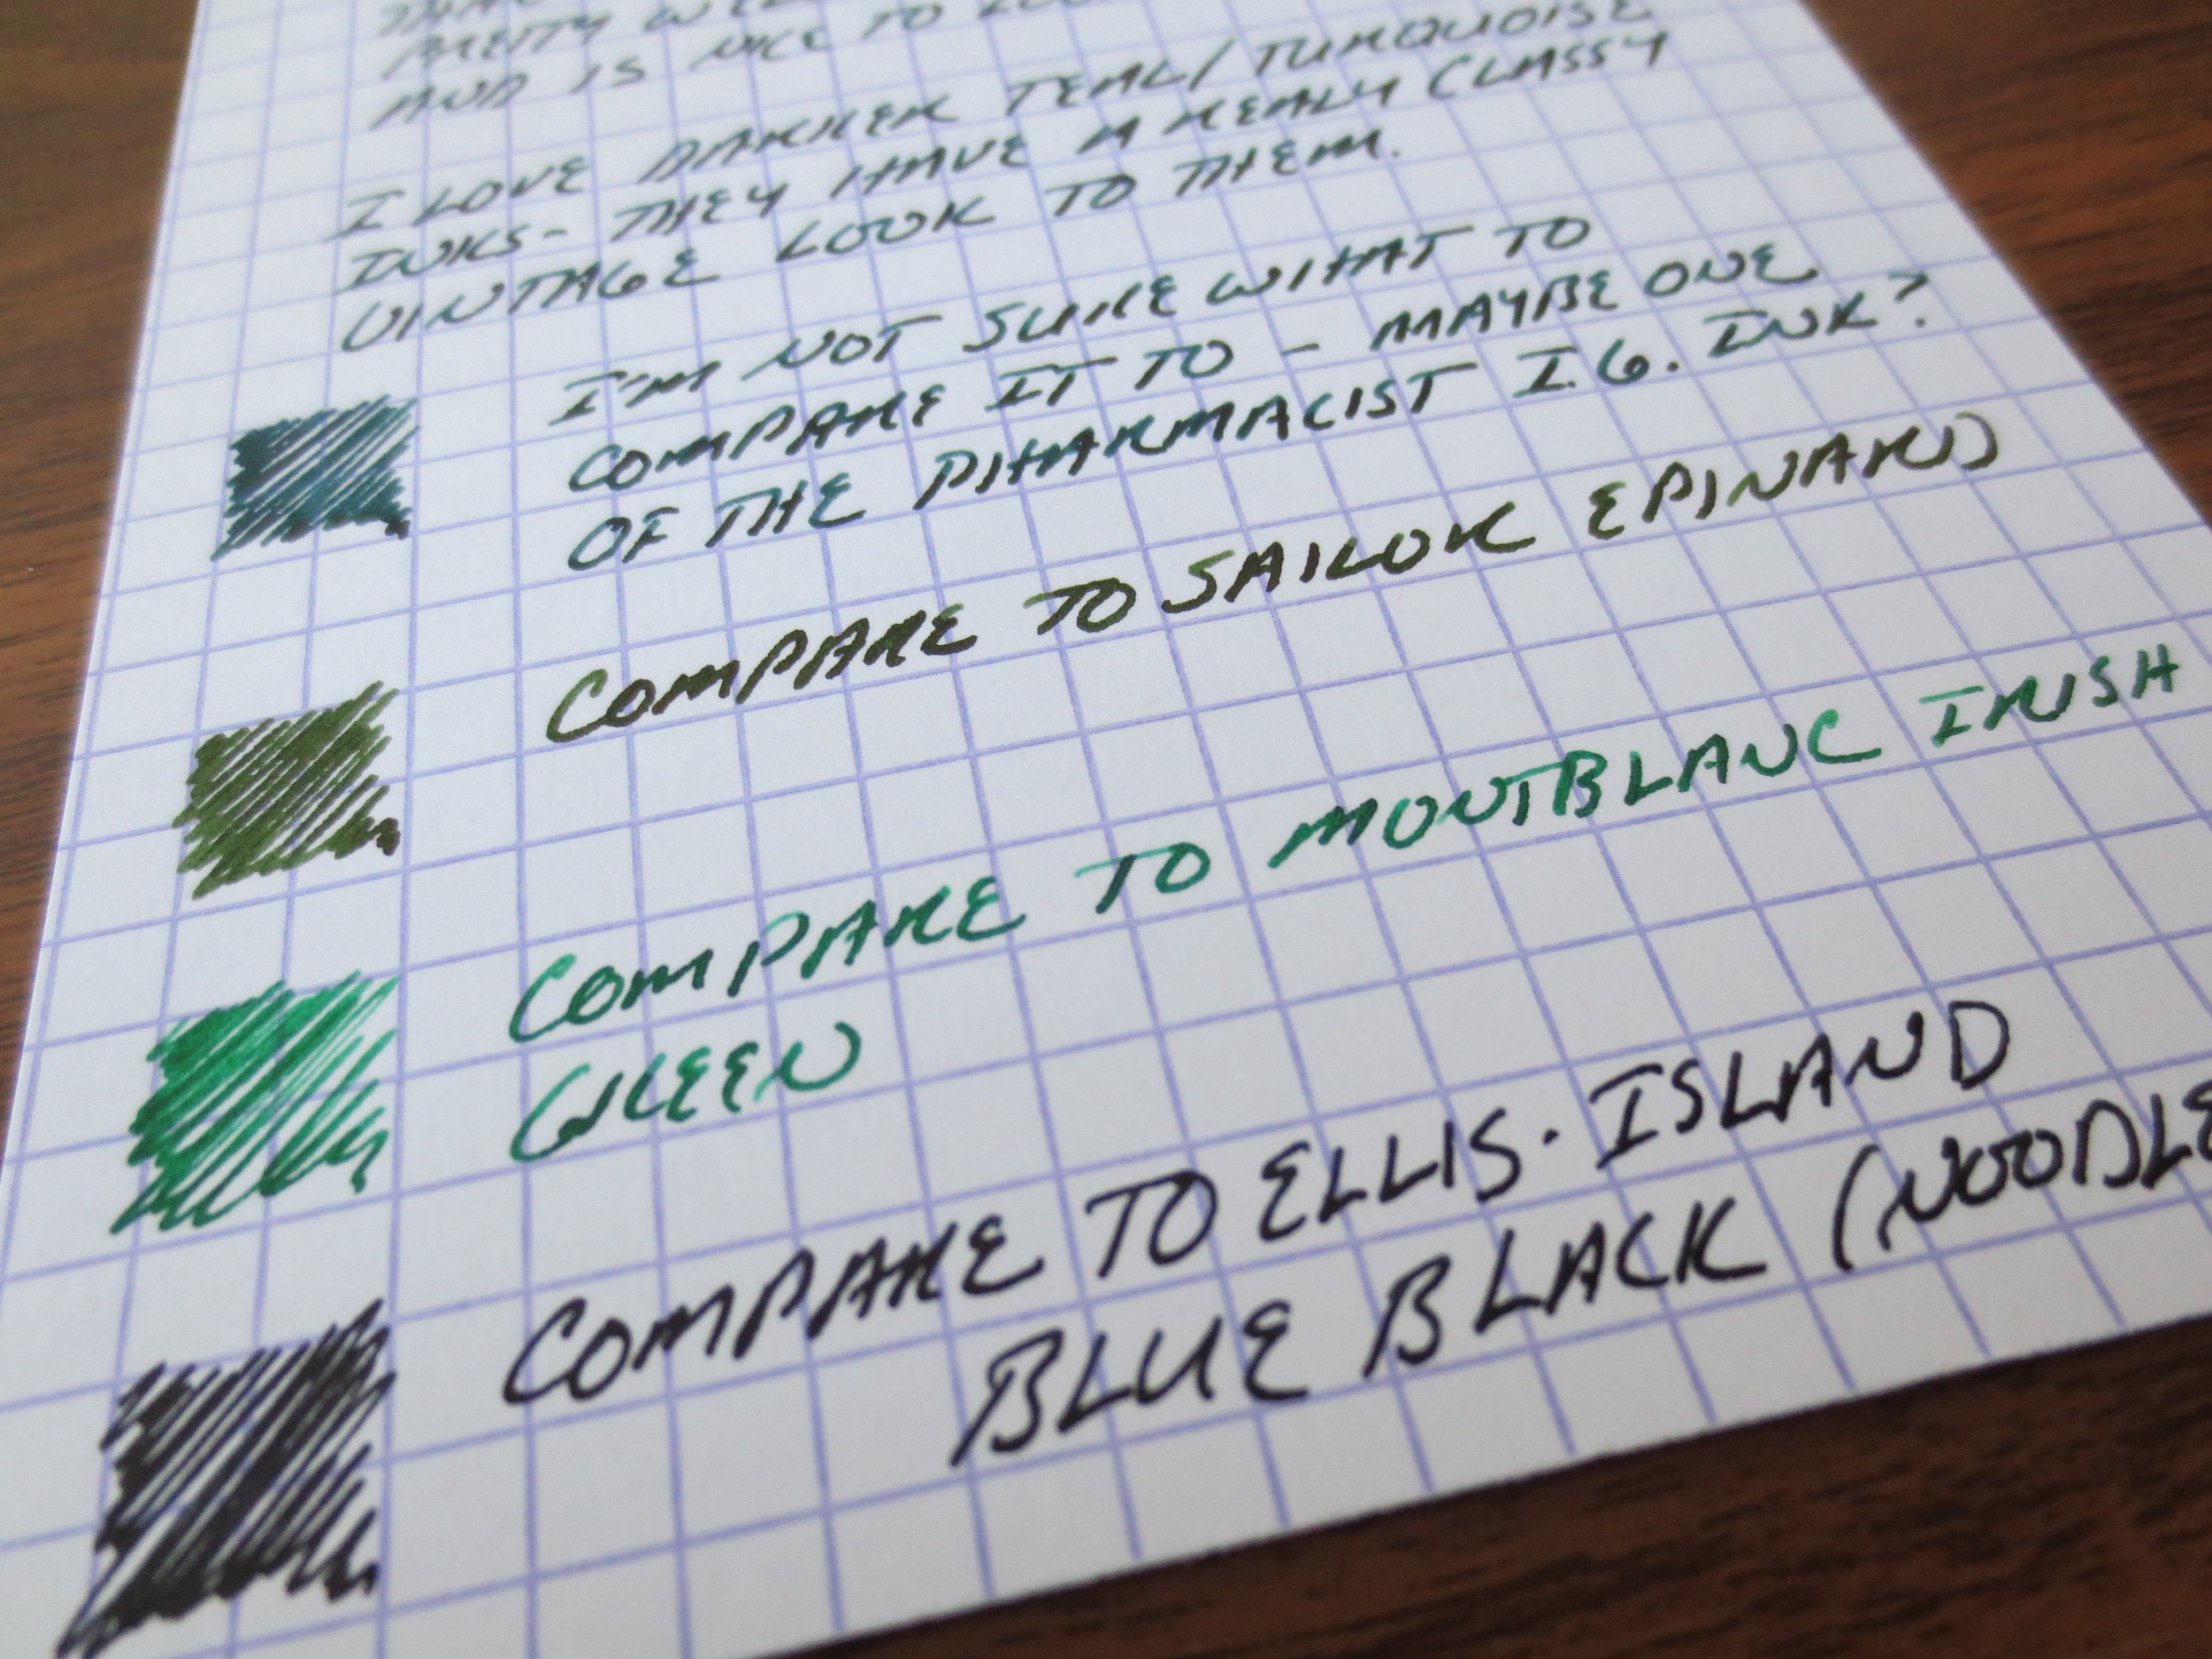 PRETTY
AND IS NICE TO
I LOVE DARKER TEAL/TURQUOISE
INKS - THEY HAVE A REALY CLASSY
VINTAGE LOOK TO THEM.
I'M NOT SURE WHAT TO
COMPARE IT TO - MAYBE ONE
OF THE PHARMACIST I.G. INK?
COMPARE TO SAILOR EPINARD
COMPARE TO MONTBLANC IRISH
GREEN
COMPARE TO ELLIS · ISLAND
BLUE BLACK (NOODLE